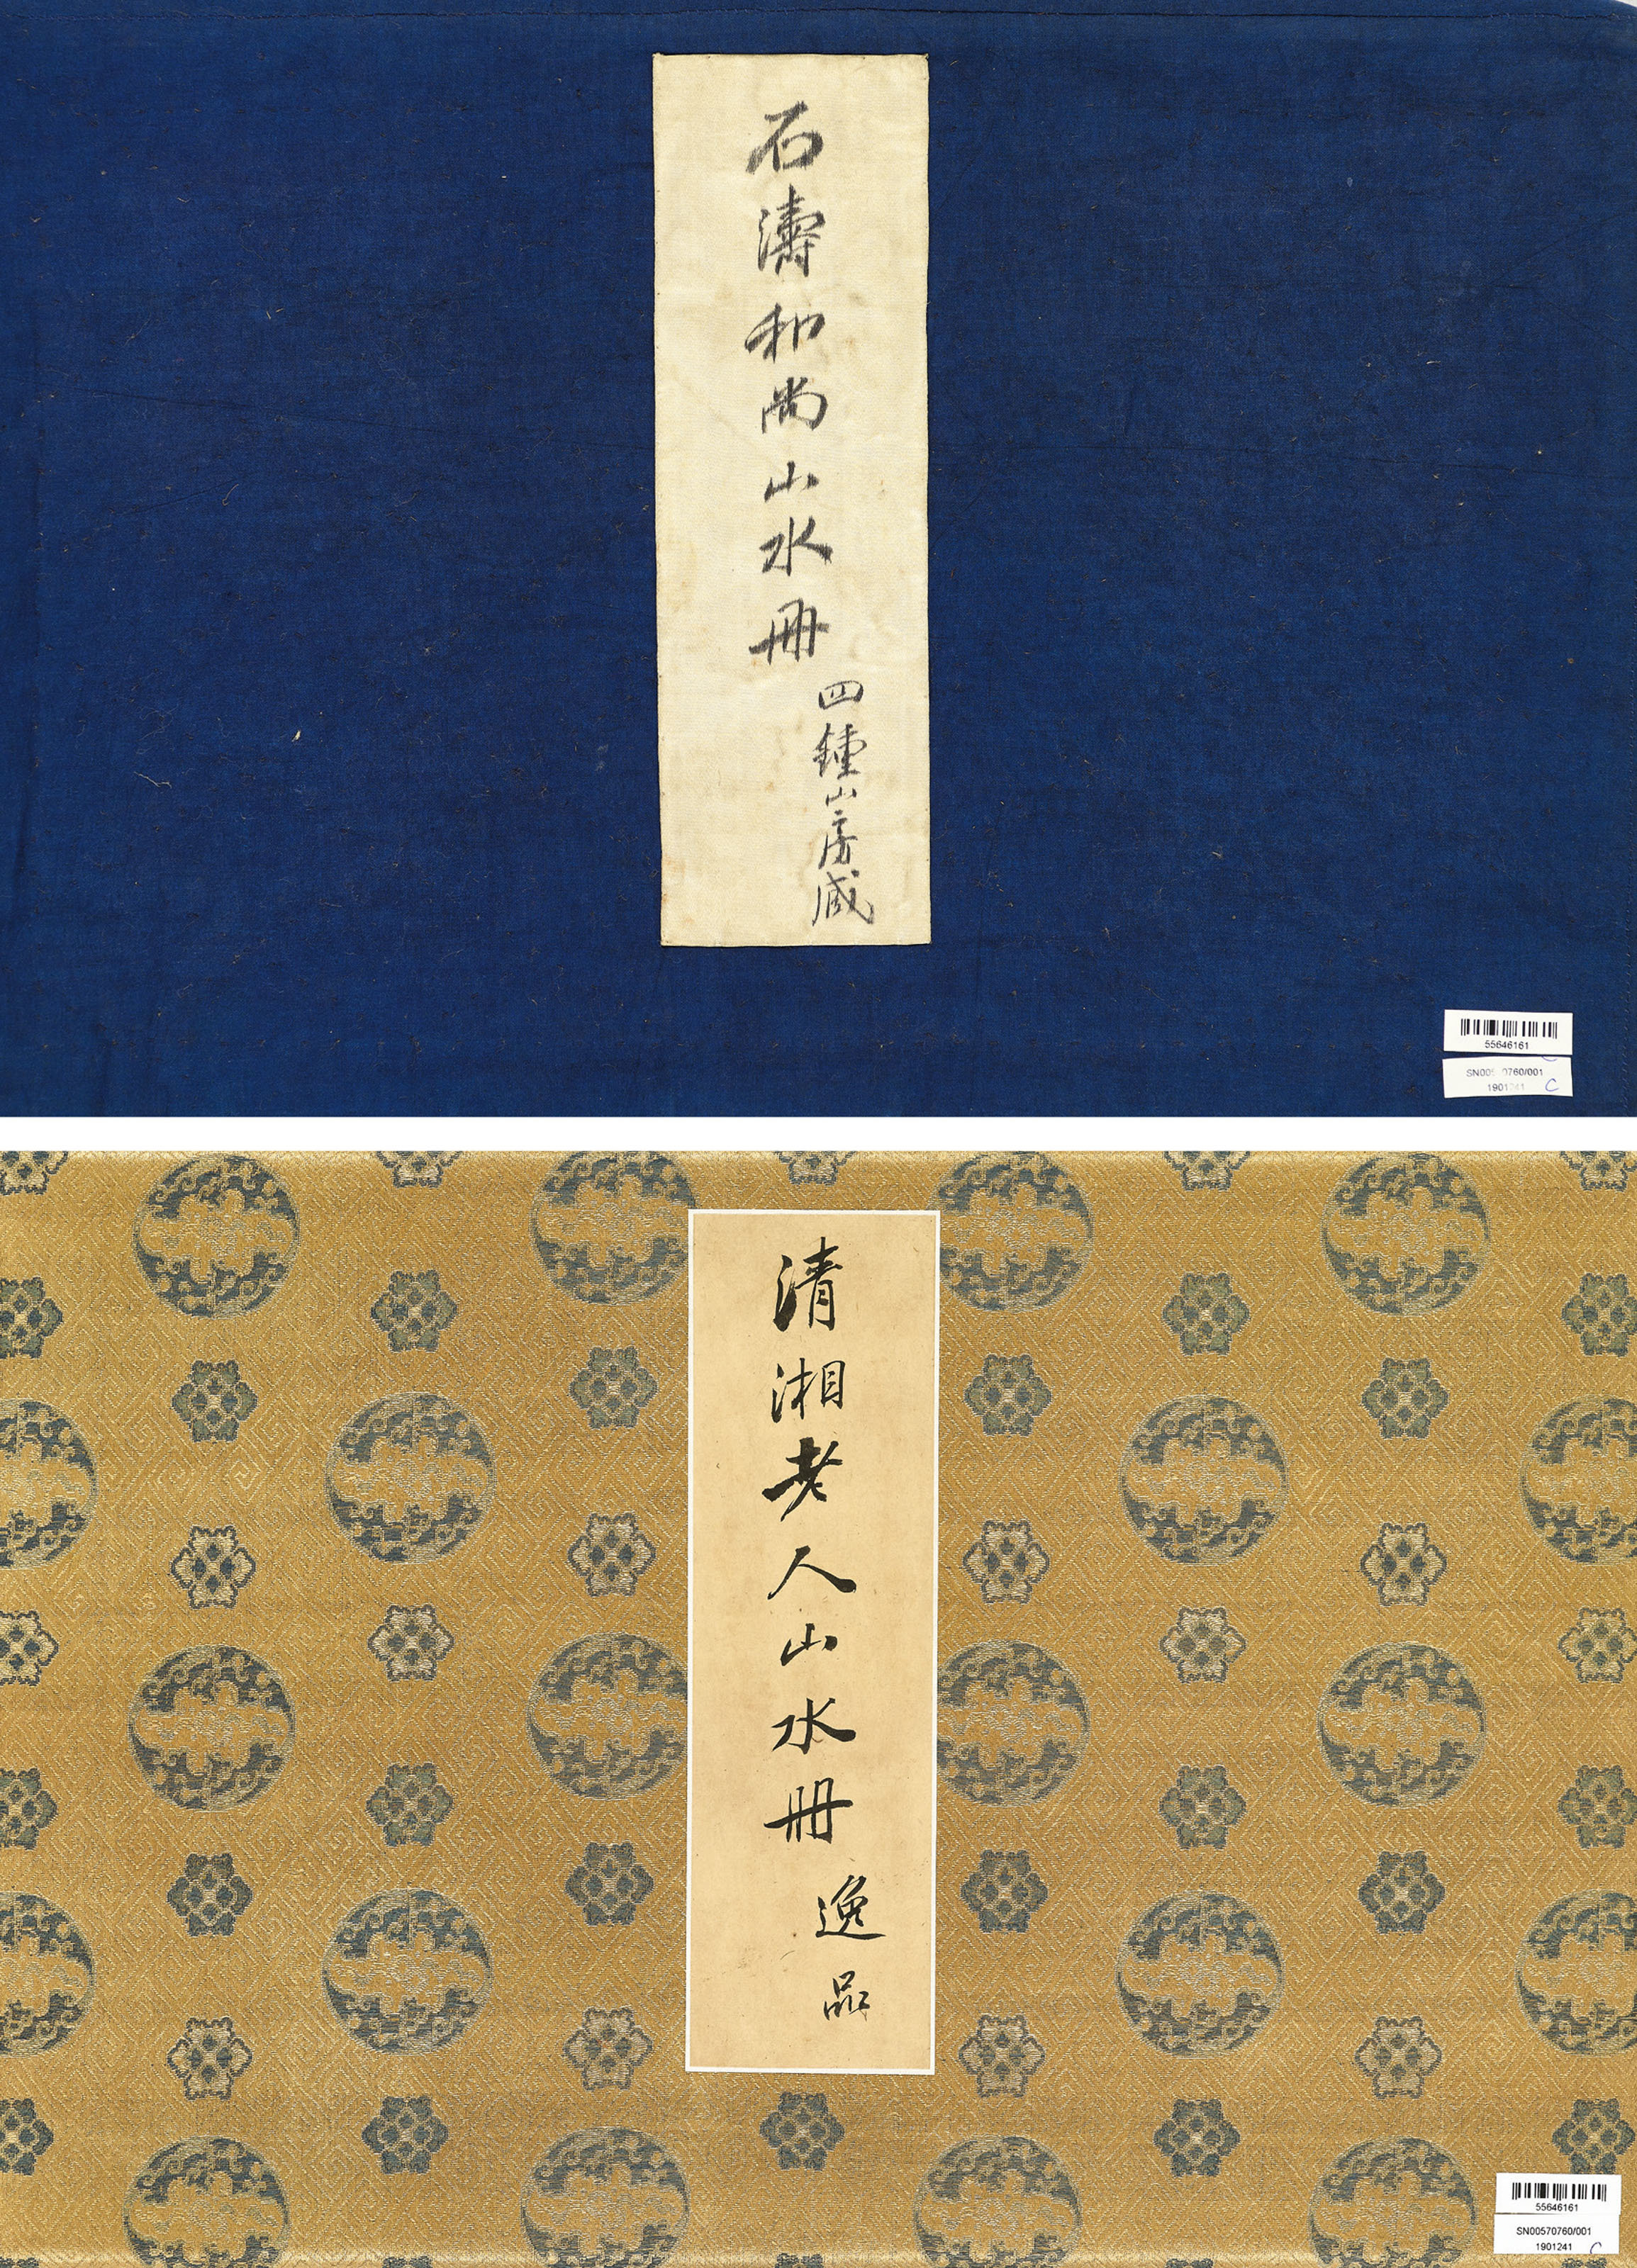 石濤和尚山水册
四鍾山房藏
55646161
0760/001
C
清湘老人山水册
逸品
55646161
SN00570760/001
1901241
C